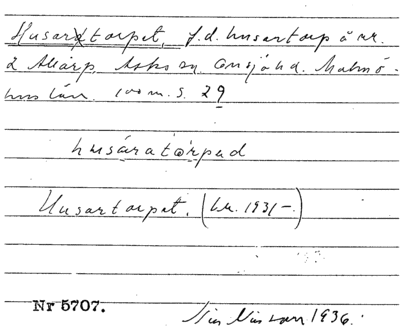 Husartorpet, f.d. husartorp å nr.
2 Allarp, Asks sn. Onsjö hd. Malmö-
hus län. 100 m. S. 29
husáratòrped
Husartorpet. (br. 1931–.)
Nr 5707. 1936.